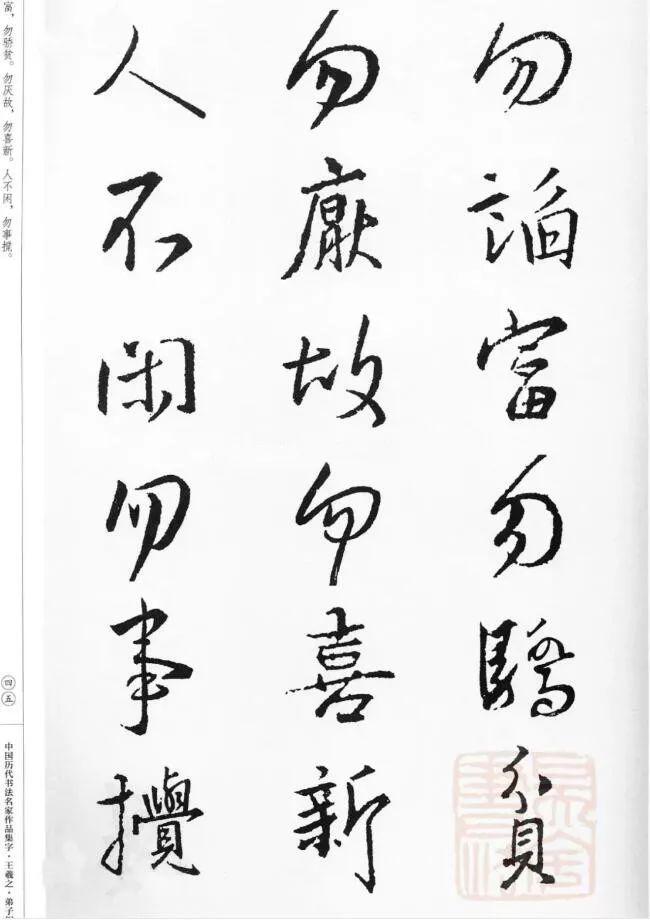 勿諂富勿驕貧
勿厭故勿喜新
人不閑勿事攪
富，勿骄贫。勿厌故，勿喜新。人不闲，勿事搅。
四五
中国历代书法名家作品集字·王羲之·弟子